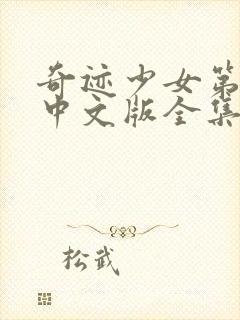 奇迹少女第
中文版全集
松武